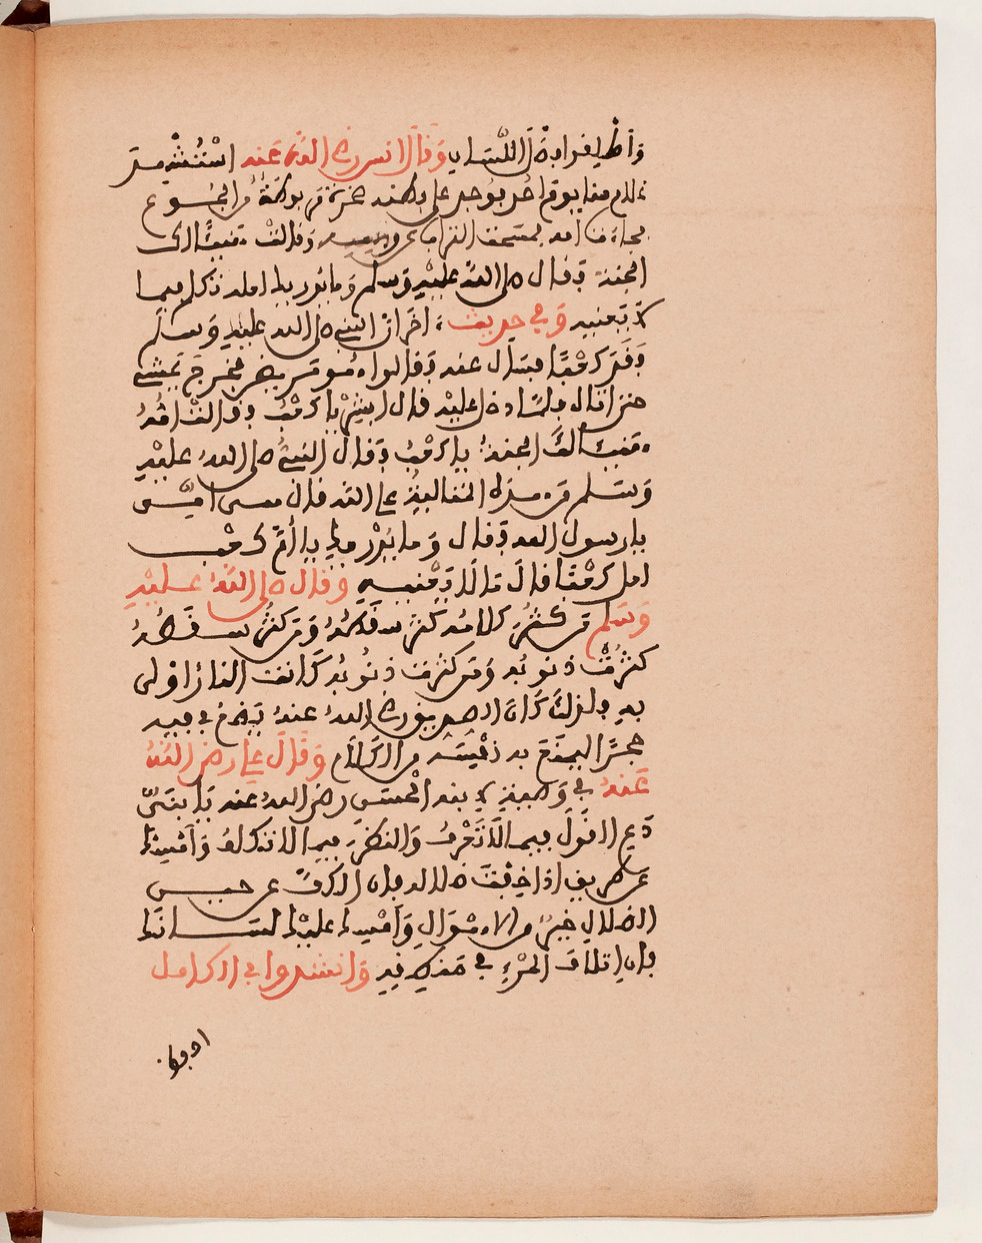 وَقَالَ انس رضي الله عَنه اسْتُشْهِدَ
غلام منا يوم احد بوجد على بطنه صخرة مربوطة من الجُوع
فمسحت التراب عن وجهه وَقالت هنيئا لك
الجنة فقال صلى الله عليْهِ وَسلم وَما يُدريك لعله تكلم بيما
لا يَعنيه وَفي حديث اخرَ ان النبي صلى الله عليه وَسلم
فَقَدَ كَعْبًا فسَأل عنه فقالوا مريض فخرجَ يَمشي
حتى اتاه فلما دخل عليْهِ قال ابشِرْ يا كعْبُ فقالت امُّهُ
هنيئا لكَ الجنة يا كعْبُ فقال النبي صلى الله عليْهِ
وَسلم مَن هذه المتالية على الله قال هي امي
يا رسول الله فقال وَما يُدْريكِ يا أُمَّ كعْب
لعل كَعْبًا قالَ مَا لا يَعْنيه وَقال صلى اللهُ عليْهِ
وَسَلم مَن كثُرَ كلامُه كثر سقطُهُ وَمَن كثُر سقطُهُ
كثُرتْ ذنوبُه وَمَن كثُرت ذنوبُه كَانت النارُ اوْلى
بهِ ولذلكَ كانَ الصديق رضي اللهُ عنهُ يَضعُ في فيه
حجرًا ليمنَعَ به نفْسَه من الكَلام وَقَالَ علي رضي اللهُ
عَنهُ في وَصيته لابنه الحسَن رضي اللهُ عنه يَا بنَيّ
دَع القَولَ فيما لا تَعْرفُ وَالنظرَ فيما لا تكلفُ وَأمْسِك
عن طريق اذا خِفْتَ ضلاله فان الكفَّ عن حيرة
الضلال خيرٌ من الاهْوَالِ وَأمْسِك عليْك لسَانَك
فان اتلافَ المرْءِ في مَنطِقِهِ وَانشدوا في الكامل